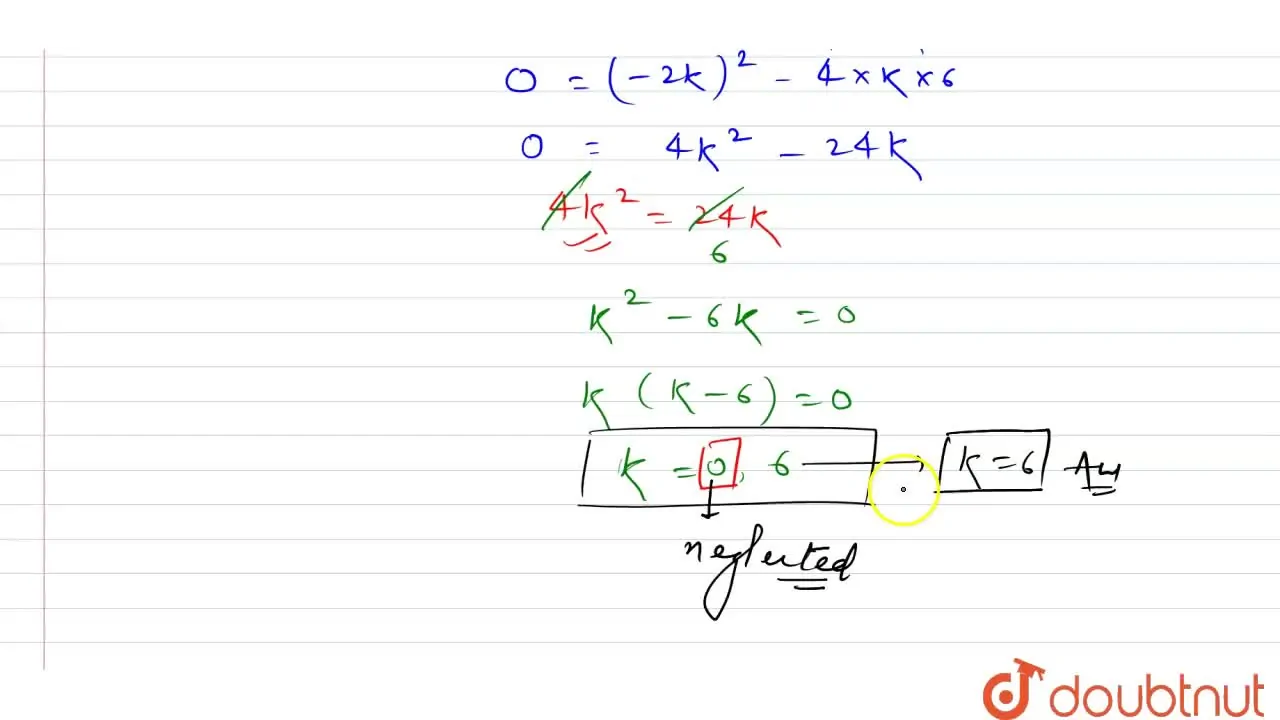 0 = (-2k)² - 4×k×6
0 = 4k² - 24k
4k² = 24k
6
k² - 6k = 0
k (k-6) = 0
k = 0, 6 → k=6 Ans
neglected
doubtnut